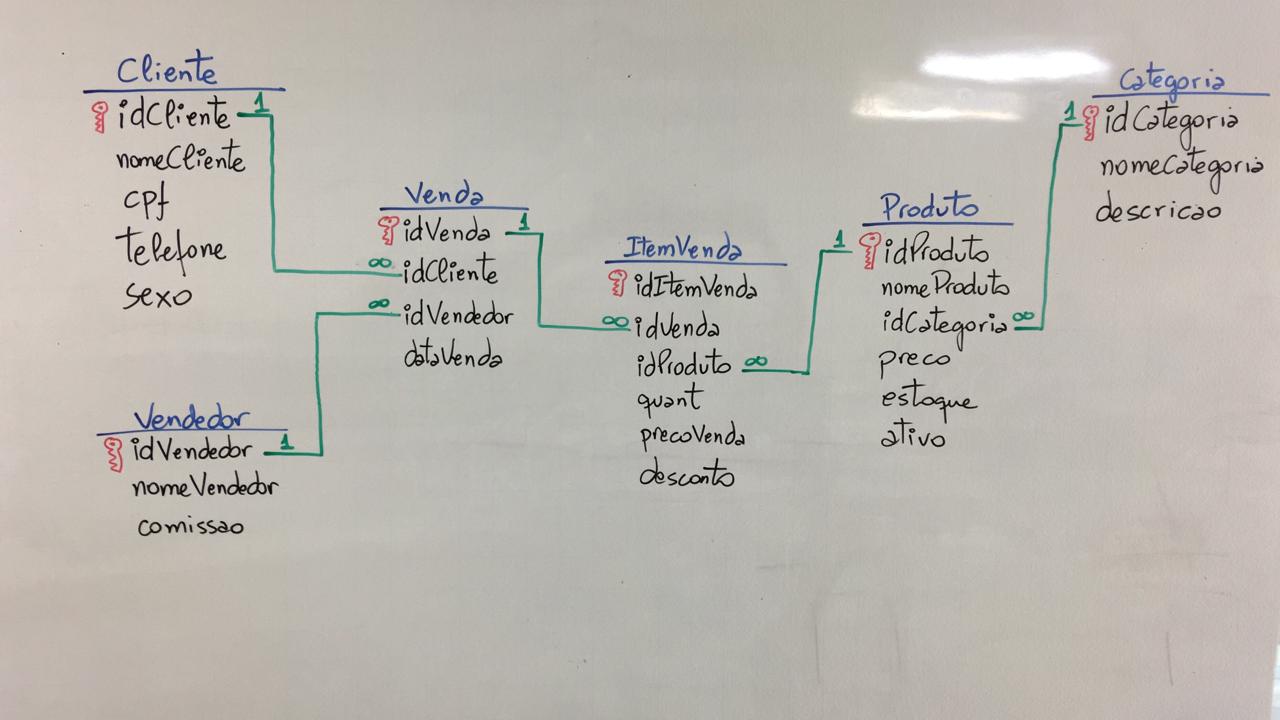 Cliente
idCliente 1
nomeCliente
cpf
telefone
sexo
Vendedor
idVendedor 1
nomeVendedor
comissao
Venda
idVenda 1
∞ idCliente
∞ idVendedor
dataVenda
ItemVenda
idItemVenda
∞ idVenda
idProduto ∞
quant
precoVenda
desconto
Produto
1 idProduto
nomeProduto
idCategoria ∞
preco
estoque
ativo
Categoria
1 idCategoria
nomeCategoria
descricao